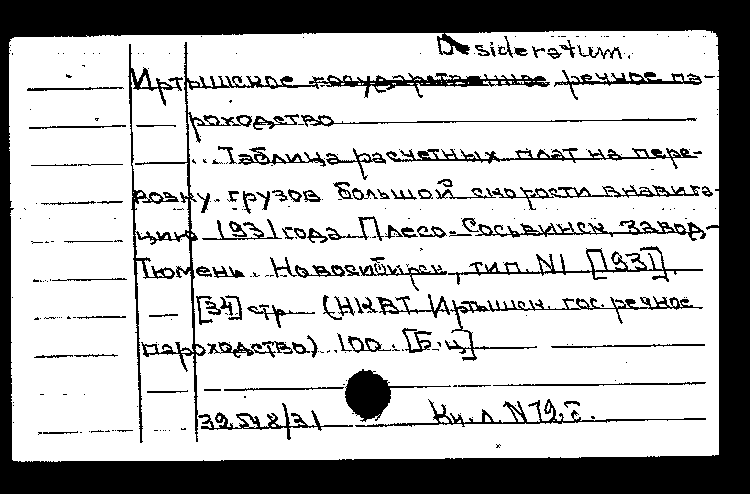 Desideratum.
Иртышское государственное речное па-
роходство
...Таблица расчетных плат на пере-
возку грузов большой скорости внавига-
цию 1931 года. Плесо-Сосьвинск. завод-
Тюмень. Новосибирск, тип. N1 [1931].
[34] стр. (НКВТ Иртышск. гос. речное
пароходство) 100. [Б.ц]
32548/31 Кн.л. N72 г.